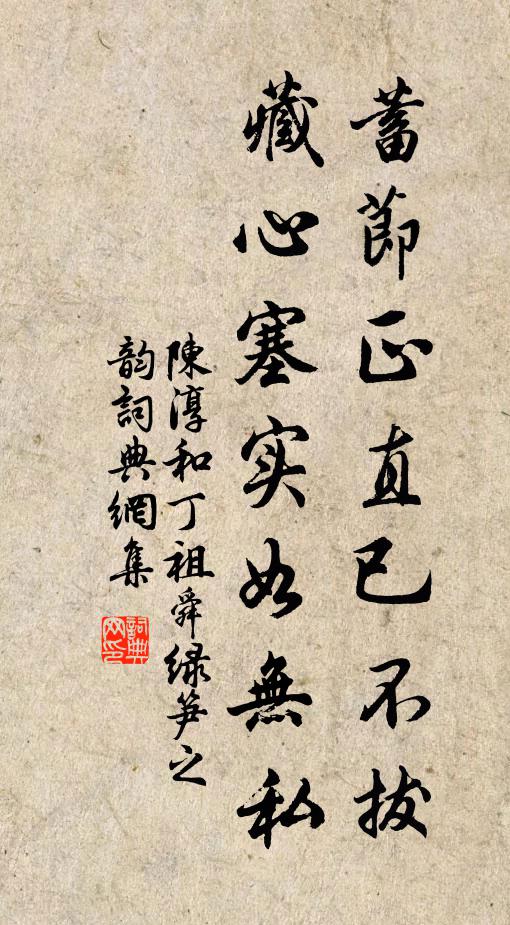 蓄節正直已不拔
藏心塞实如無私
陳淳和丁祖舜緑笋之
韵詞典網集
詞典網印